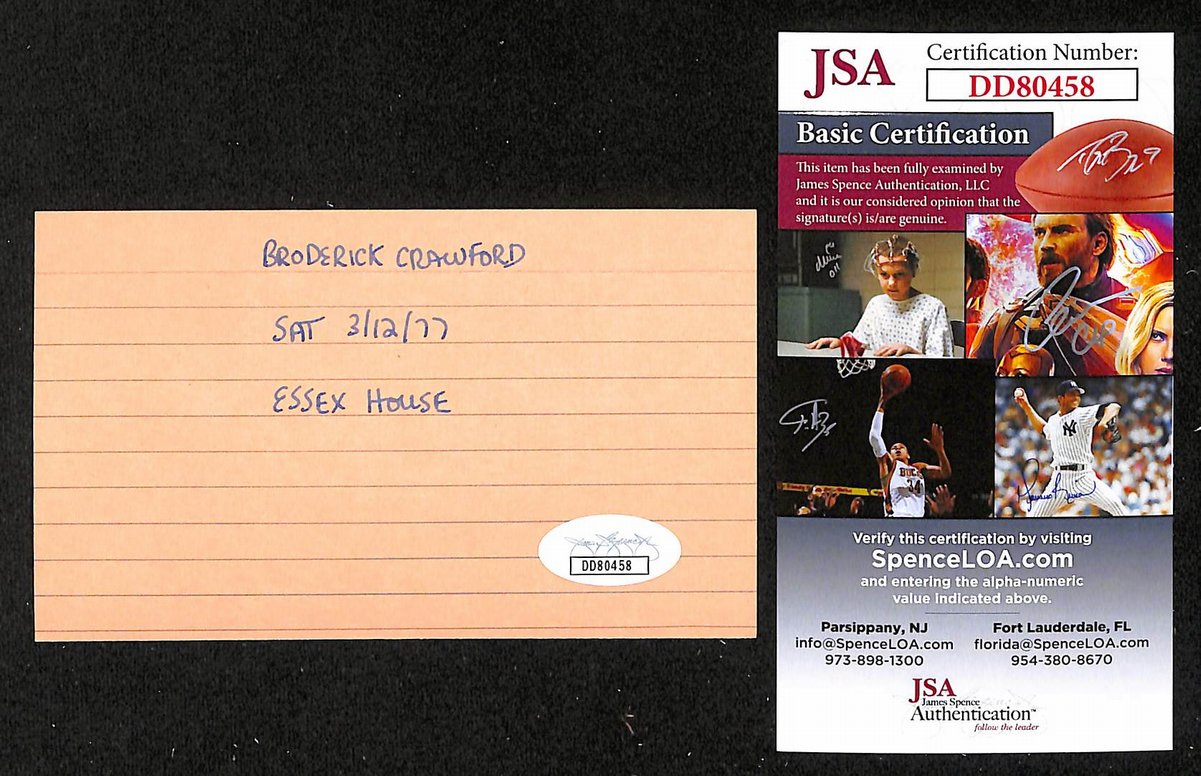 BRODERICK CRAWFORD
SAT 3/12/77
ESSEX HOUSE
DD80458
JSA
Certification Number:
DD80458
Basic Certification
This item has been fully examined by
James Spence Authentication, LLC
and it is our considered opinion that the
signature(s) is/are genuine.
BUCKS
34
NY
Verify this certification by visiting
SpenceLOA.com
and entering the alpha-numeric
value indicated above.
Parsippany, NJ
info@SpenceLOA.com
973-898-1300
Fort Lauderdale, FL
florida@SpenceLOA.com
954-380-8670
JSA
James Spence
Authentication™
follow the leader